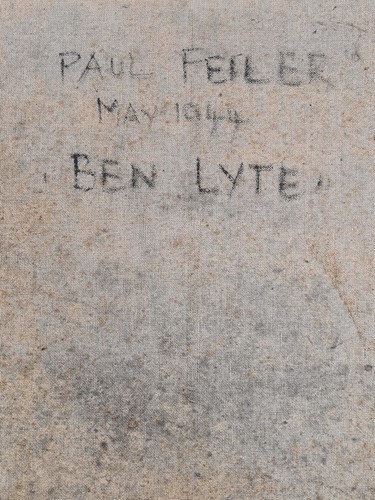 PAUL FEILER
MAY 1944
BEN LYTE.